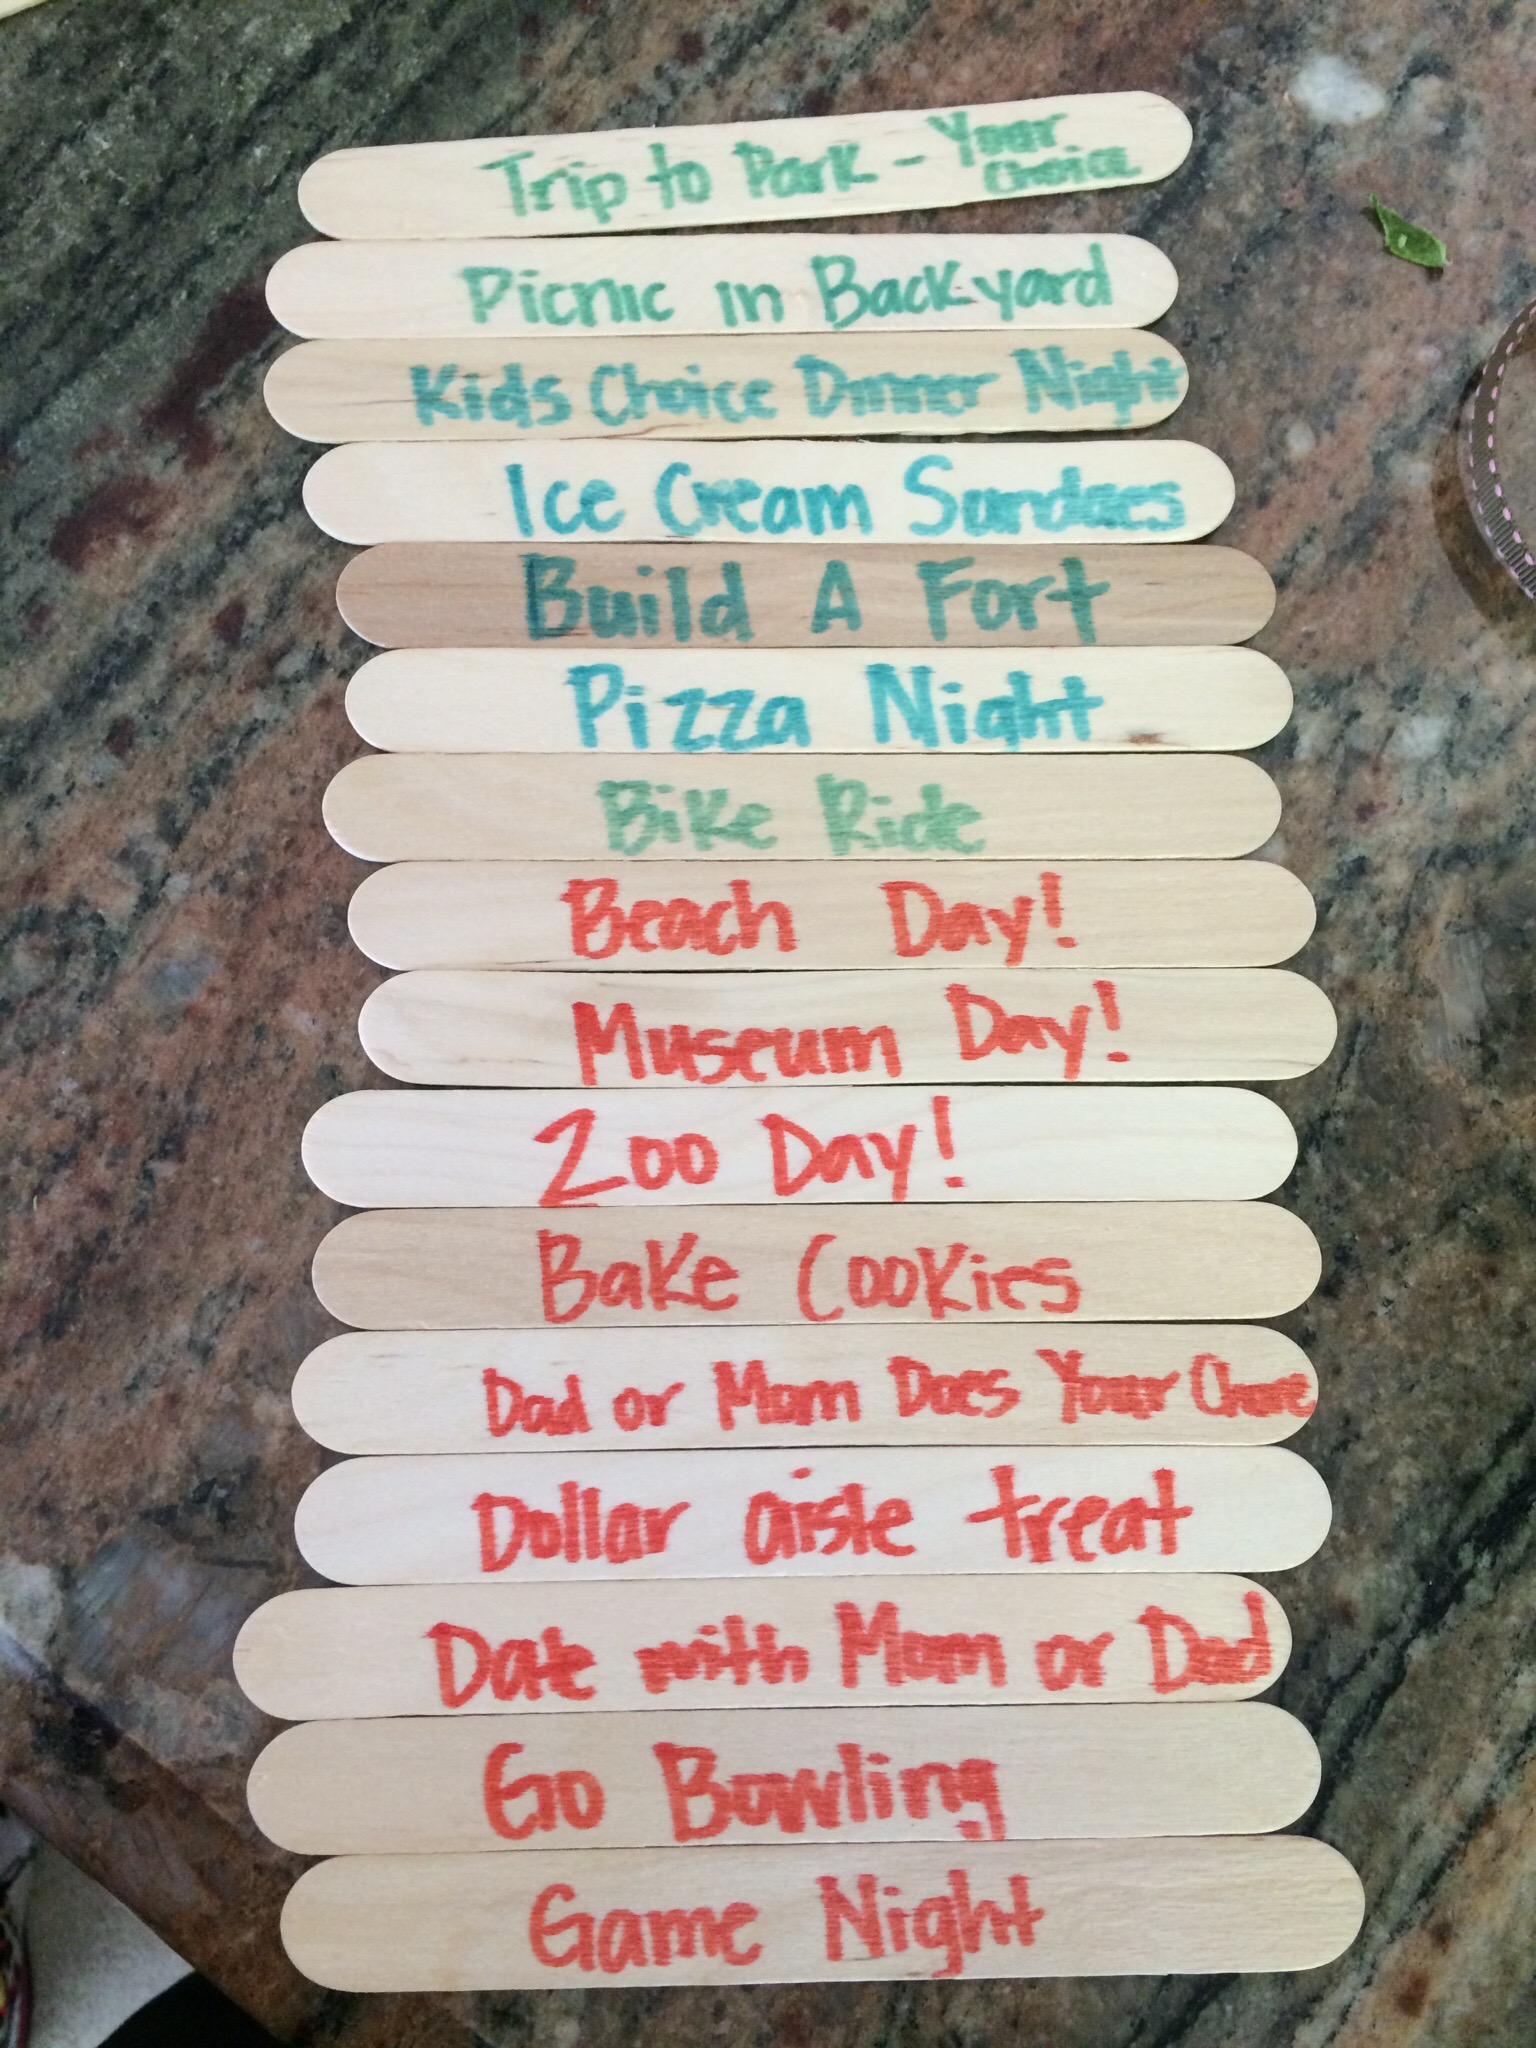 Trip to Park - Your
Choice
Picnic in Backyard
Kids Choice Dinner Night
Ice Cream Sundaes
Build A Fort
Pizza Night
Bike Ride
Beach Day!
Museum Day!
Zoo Day!
Bake Cookies
Dad or Mom Does Your Chore
Dollar aisle treat
Date with Mom or Dad
Go Bowling
Game Night